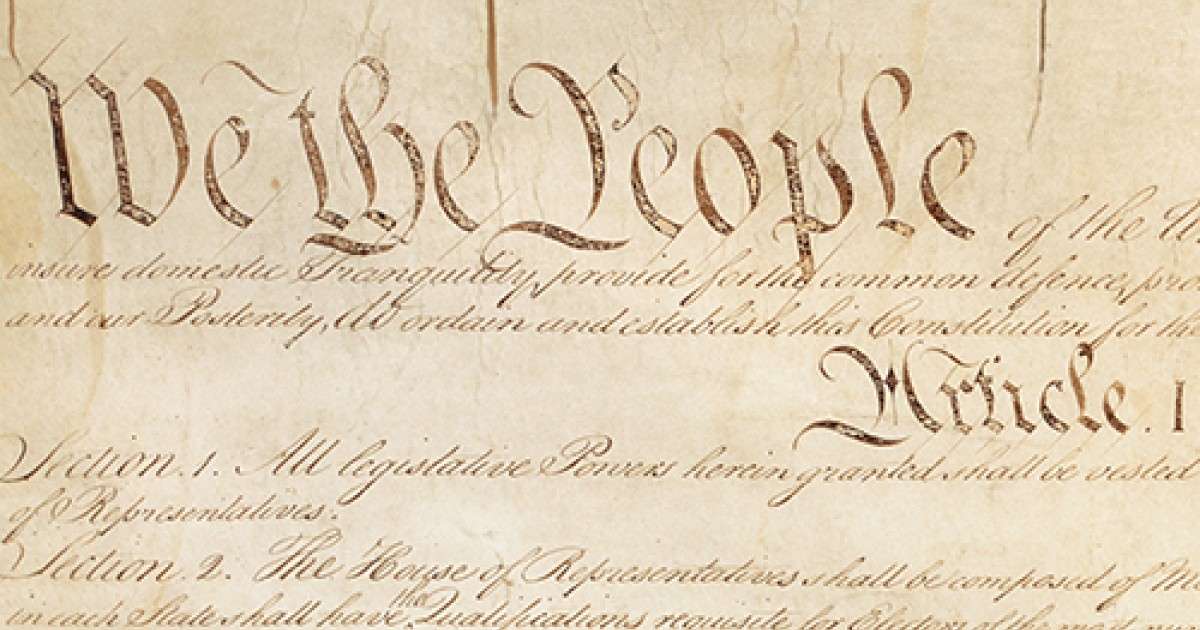 We the People of the U
insure domestic Tranquility, provide for the common defence, pro
and our Posterity, do ordain and establish this Constitution for the
Article. I
Section. 1. All legislative Powers herein granted shall be vested
of Representatives.
Section. 2. The House of Representatives shall be composed of Me
in each State shall have the Qualifications requisite for Electors of the most num